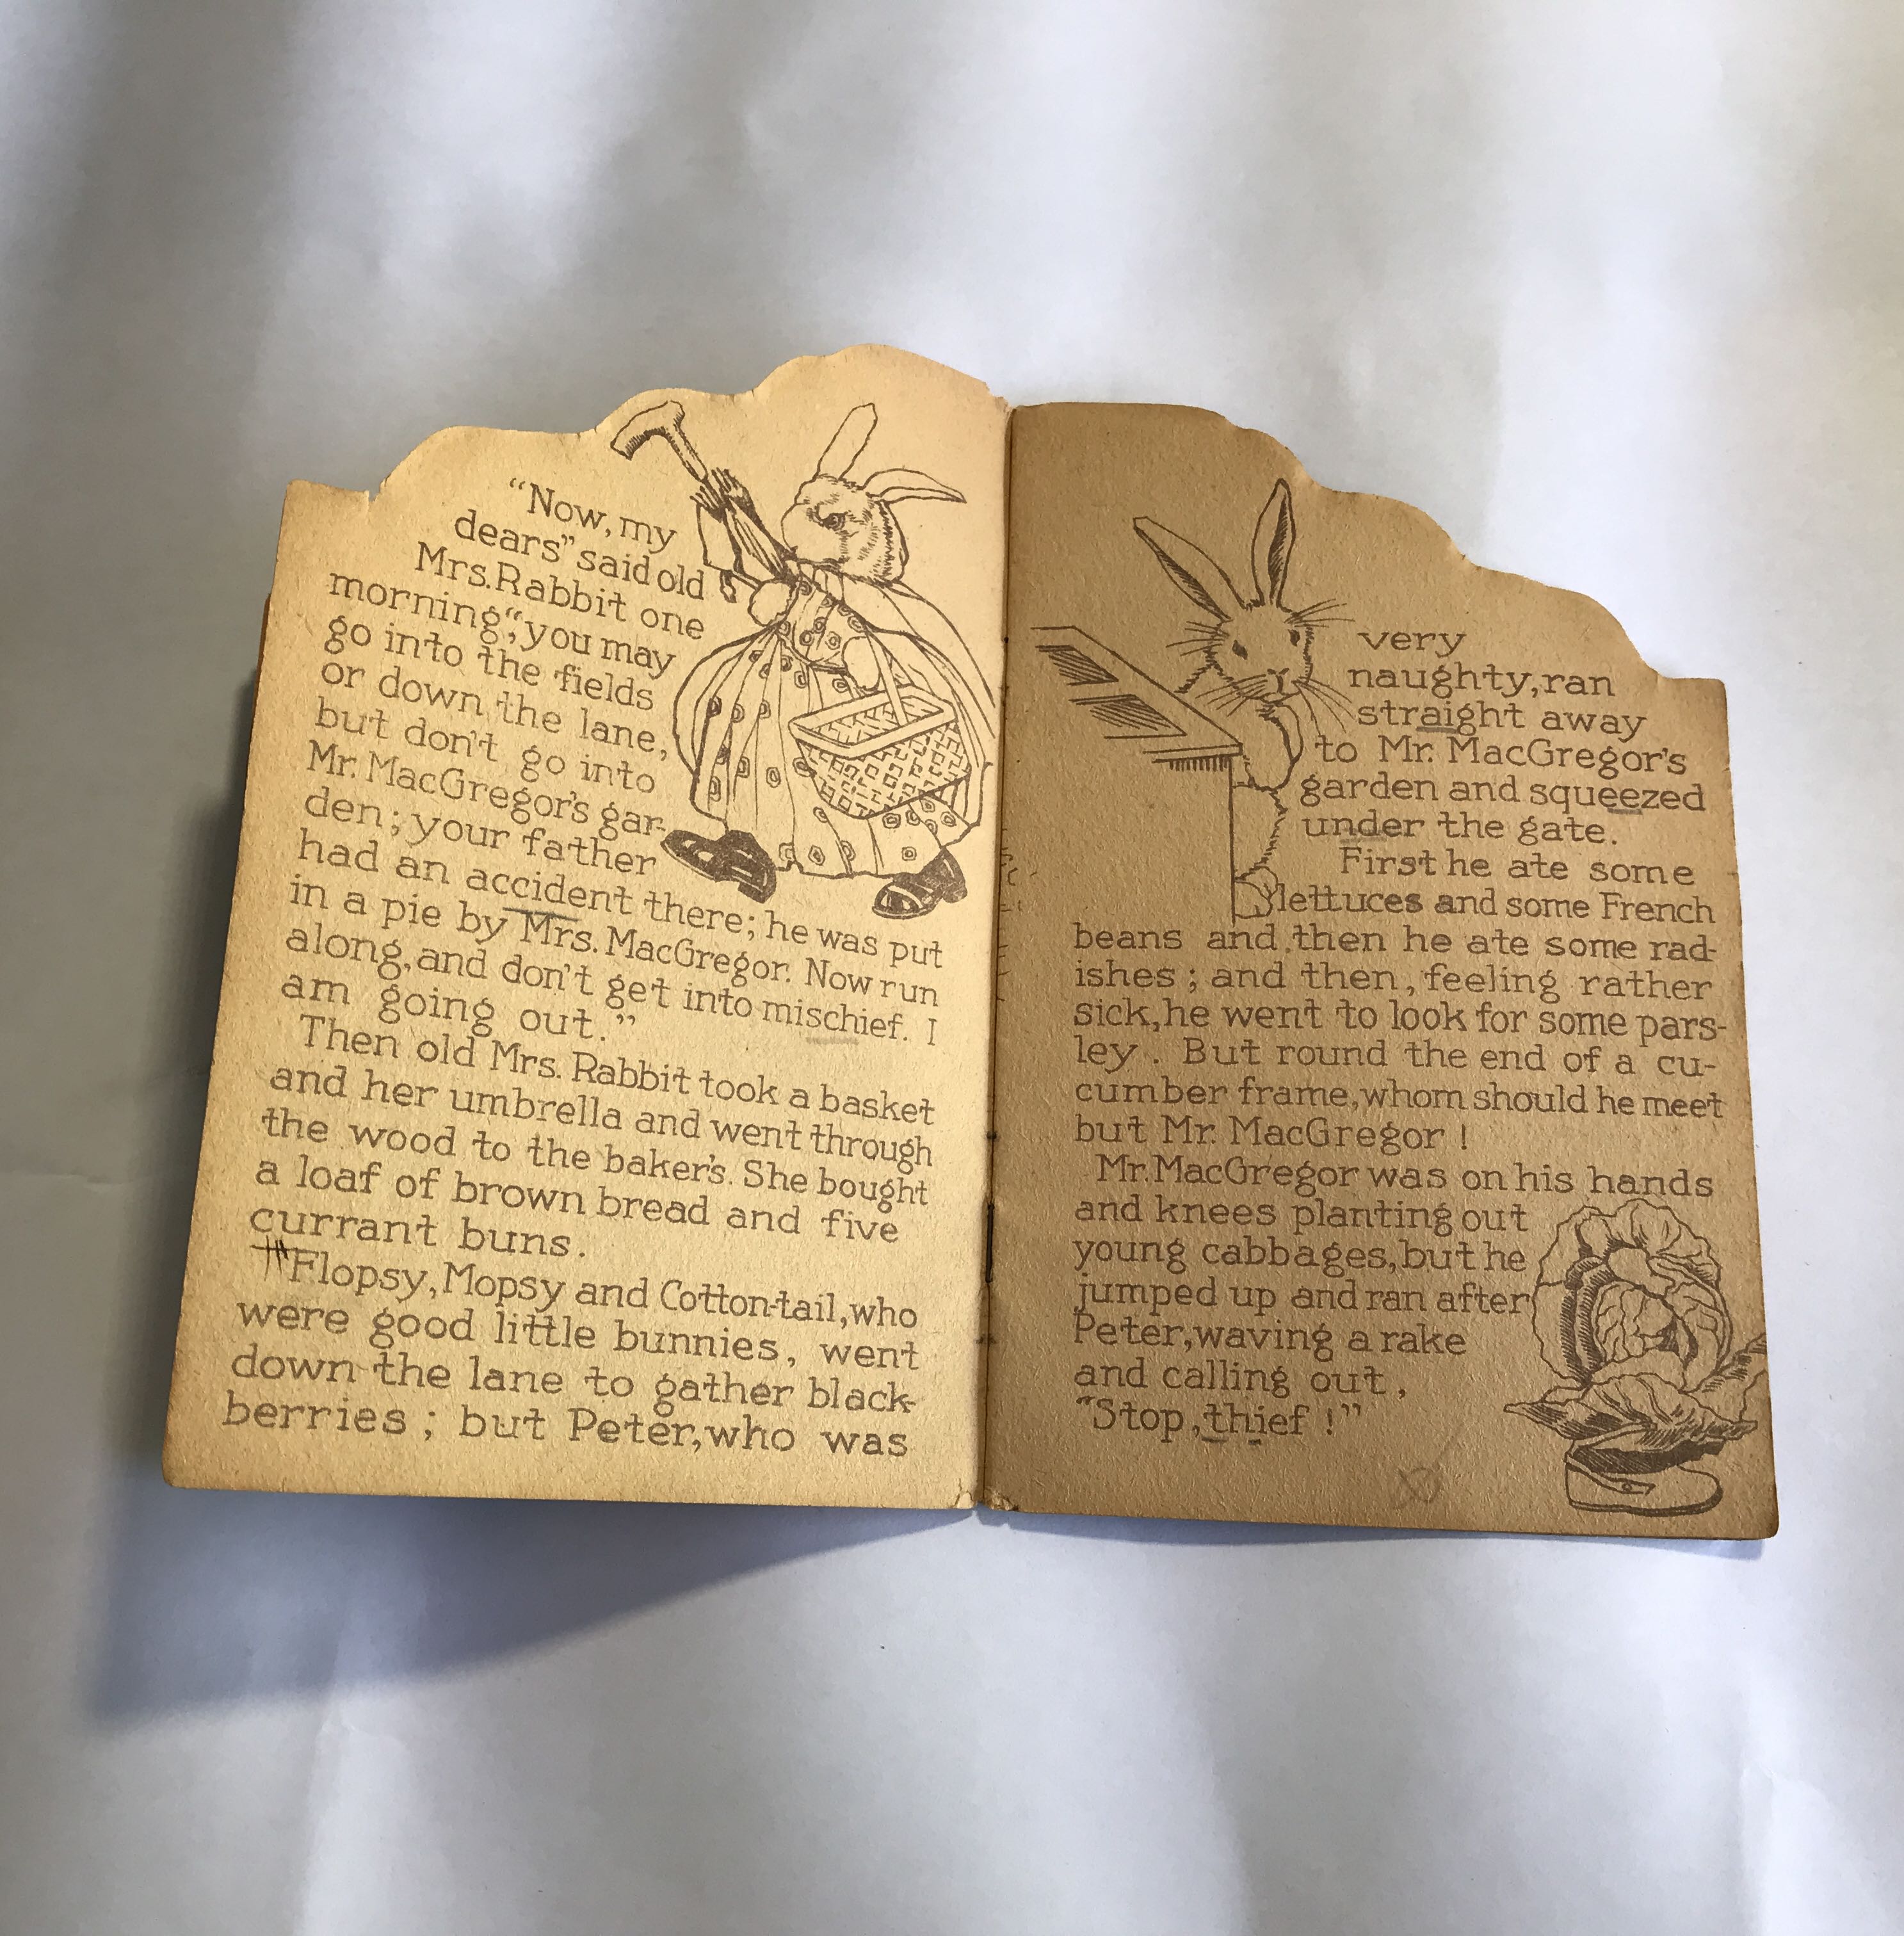 “Now, my
dears” said old
Mrs. Rabbit one
morning,“you may
go into the fields
or down the lane,
but don't go into
Mr. MacGregor's gar-
den; your father
had an accident there; he was put
in a pie by Mrs. MacGregor. Now run
along, and don't get into mischief. I
am going out.”
Then old Mrs. Rabbit took a basket
and her umbrella and went through
the wood to the baker's. She bought
a loaf of brown bread and five
currant buns.
Flopsy, Mopsy and Cotton-tail, who
were good little bunnies, went
down the lane to gather black-
berries; but Peter, who was
very
naughty, ran
straight away
to Mr. MacGregor's
garden and squeezed
under the gate.
First he ate some
lettuces and some French
beans and then he ate some rad-
ishes; and then, feeling rather
sick, he went to look for some pars-
ley. But round the end of a cu-
cumber frame, whom should he meet
but Mr. MacGregor!
Mr. MacGregor was on his hands
and knees planting out
young cabbages, but he
jumped up and ran after
Peter, waving a rake
and calling out,
“Stop, thief!”